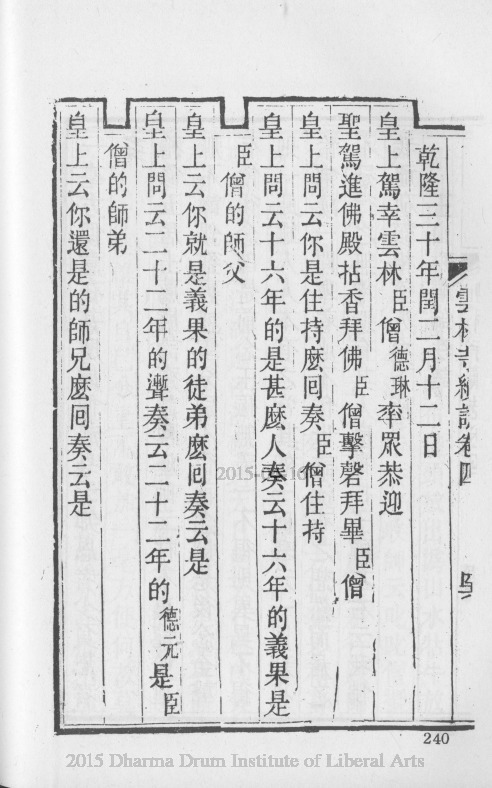 雲林寺續誌卷四
乾隆三十年閏二月十二日
皇上駕幸雲林臣僧德琳率眾恭迎
聖駕進佛殿拈香拜佛臣僧擊磬拜畢臣僧
皇上問云你是住持麽回奏臣僧住持
皇上問云十六年的是甚麽人奏云十六年的義果是
臣僧的師父
皇上云你就是義果的徒弟麽回奏云是
皇上問云二十二年的聻奏云二十二年的德元是臣
僧的師弟
皇上云你還是的師兄麽回奏云是
240
2015 Dharma Drum Institute of Liberal Arts